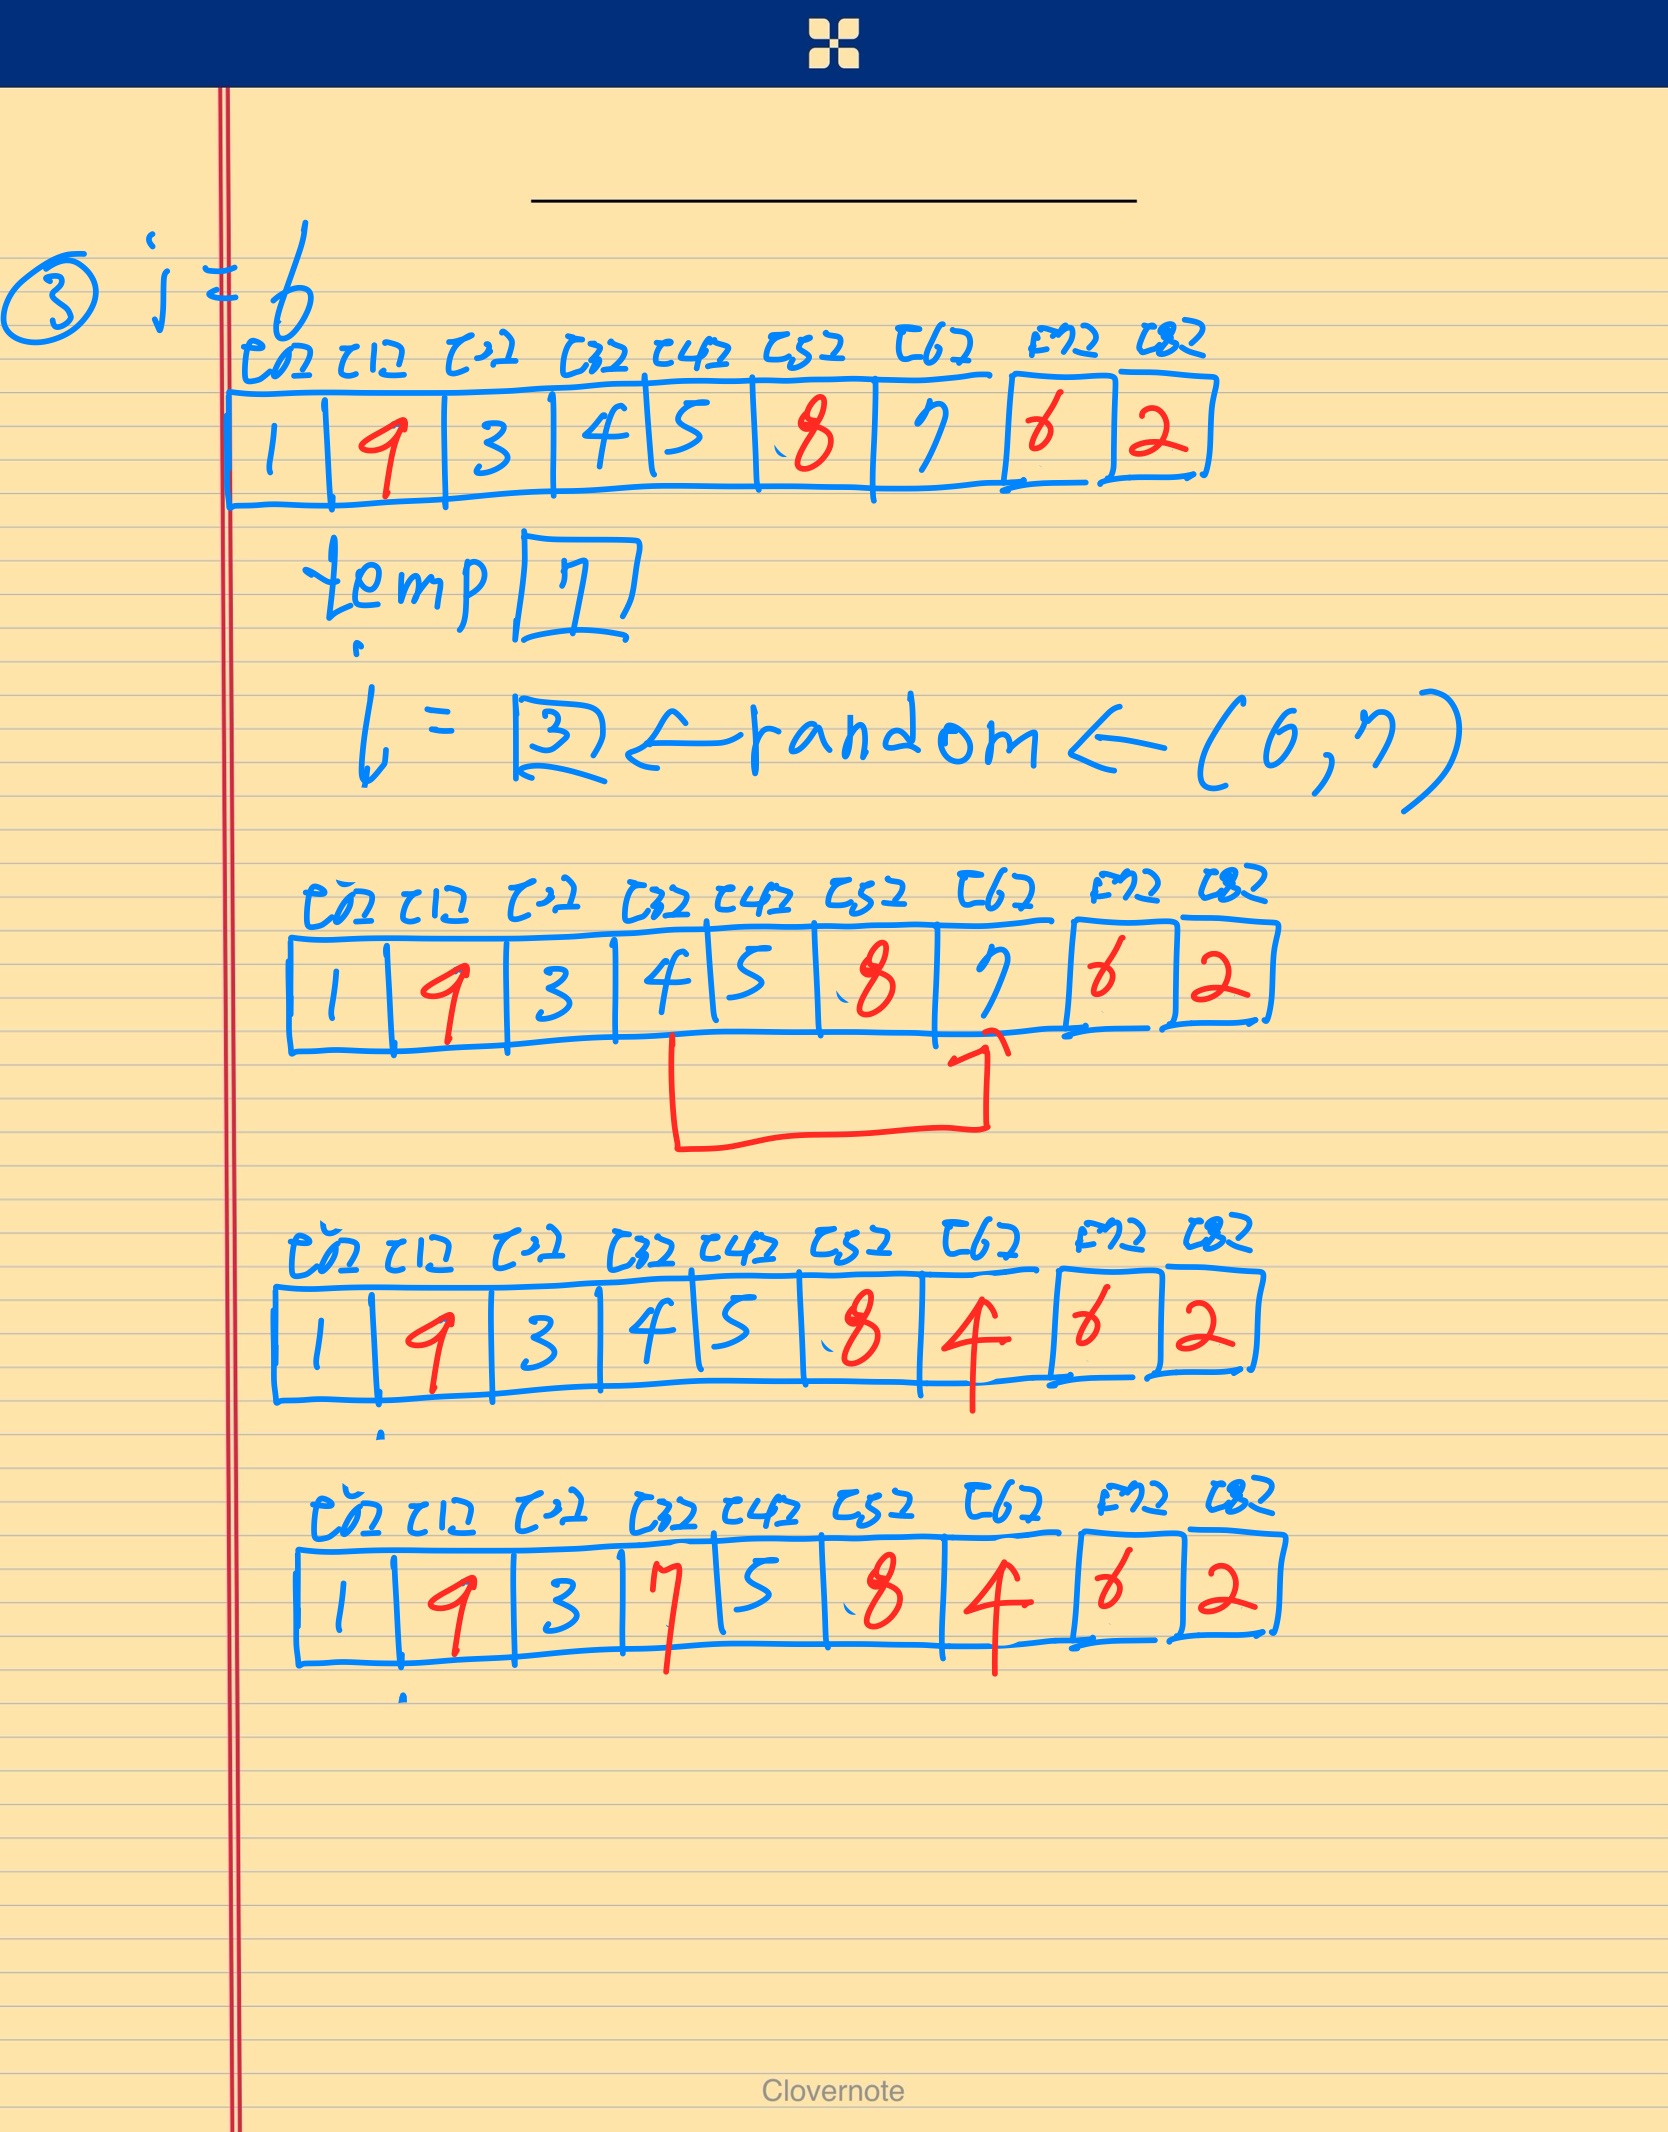 ③ j = 6
[0] [1] [2] [3] [4] [5] [6] [7] [8]
1 9 3 4 5 8 7 6 2
temp 7
j = 3 ← random ← (6, 7)
[0] [1] [2] [3] [4] [5] [6] [7] [8]
1 9 3 4 5 8 7 6 2
[0] [1] [2] [3] [4] [5] [6] [7] [8]
1 9 3 4 5 8 4 6 2
[0] [1] [2] [3] [4] [5] [6] [7] [8]
1 9 3 7 5 8 4 6 2
Clovernote